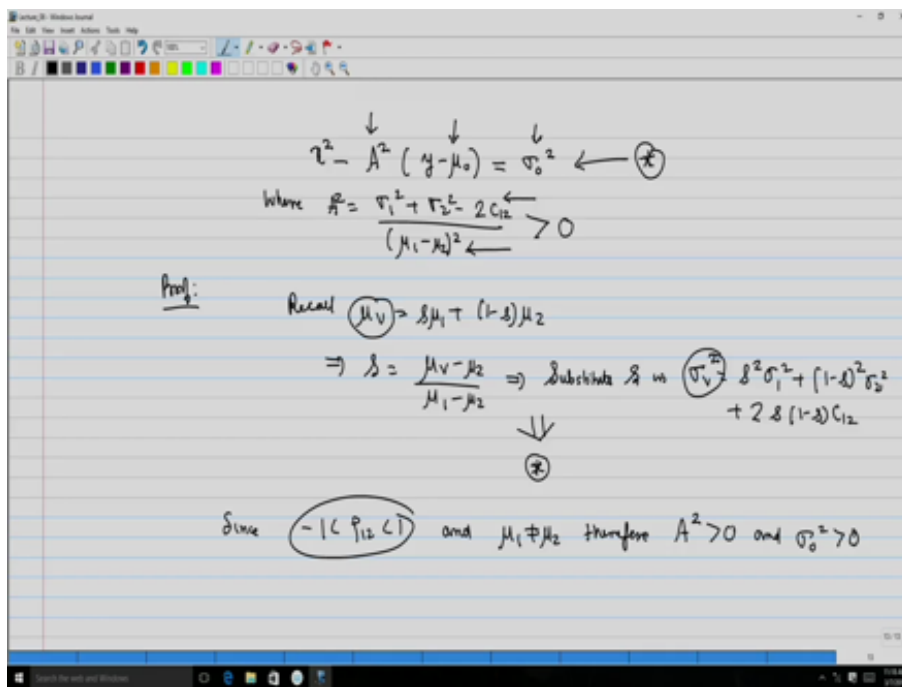 Lecture_39 - Windows Journal
File Edit View Insert Actions Tools Help
B I
x² - A² (y-μ₀) = σ₀² ← (*)
Where A² = (σ₁² + σ₂² - 2C₁₂) / (μ₁-μ₂)² > 0
Proof:
Recall μᵥ = sμ₁ + (1-s)μ₂
⇒ s = (μᵥ-μ₂) / (μ₁-μ₂) ⇒ Substitute s in σᵥ² = s²σ₁² + (1-s)²σ₂²
+ 2s(1-s)C₁₂
⇓
(*)
Since -1 < ρ₁₂ < 1 and μ₁ ≠ μ₂ therefore A² > 0 and σ₀² > 0
Search the web and Windows